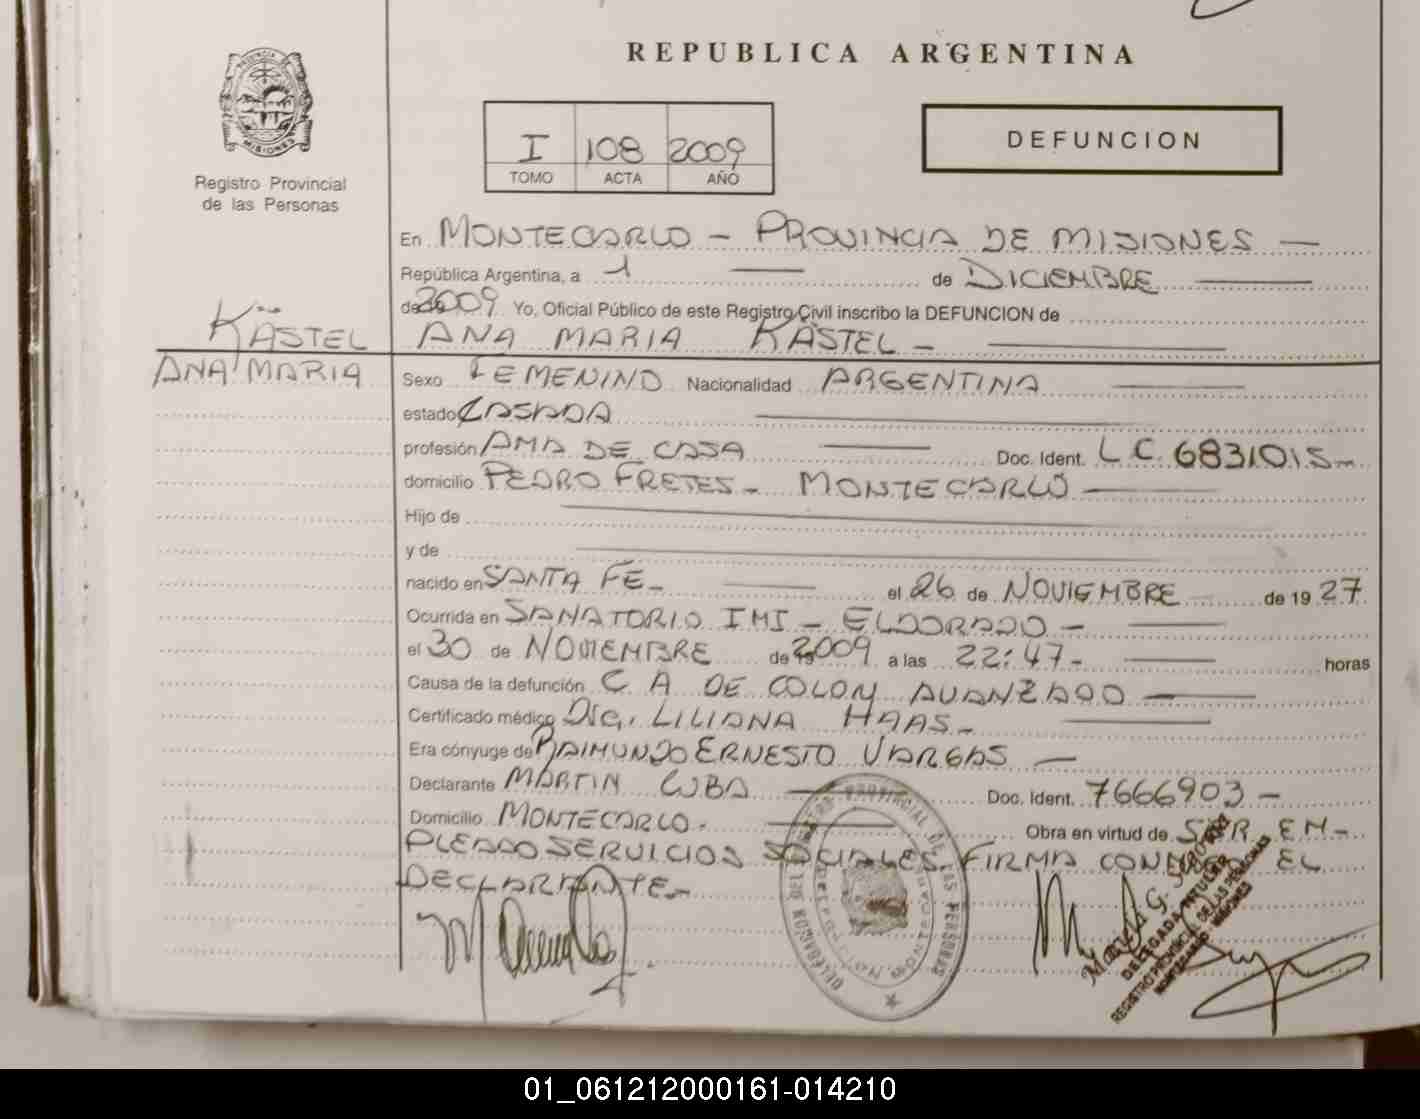 REPUBLICA ARGENTINA
PROVINCIA DE
MISIONES
Registro Provincial
de las Personas
I 108 2009
TOMO ACTA AÑO
DEFUNCION
En MONTECARLO – PROVINCIA DE MISIONES —
República Argentina, a 1 — de DICIEMBRE —
de 2009 Yo, Oficial Público de este Registro Civil inscribo la DEFUNCION de
KÄSTEL
ANA MARIA
ANA MARIA KÄSTEL – —
Sexo FEMENINO Nacionalidad ARGENTINA —
estado CASADA —
profesión AMA DE CASA — Doc. Ident. L C 6831015–
domicilio PEDRO FRETES – MONTECARLO —
Hijo de —
y de —
nacido en SANTA FE – — el 26 de NOVIEMBRE de 19 27
Ocurrida en SANATORIO IMI – ELDORADO – —
el 30 de NOVIEMBRE de 2009 a las 22:47– — horas
Causa de la defunción C A DE COLON AVANZADO —
Certificado médico LILIANA HAAS – —
Era cónyuge de RAIMUNDO ERNESTO VARGAS —
Declarante MARTIN CUBA — Doc. Ident. 7666903 –
Domicilio MONTECARLO. — Obra en virtud de SER EM–
PLEADO SERVICIOS SOCIALES FIRMA CONMIGO EL
DECLARANTE –
REGISTRO PROVINCIAL DE LAS PERSONAS
DELEGACION
DELEGADA TITULAR
REGISTRO PROVINCIAL DE LAS PERSONAS
MONTECARLO - MISIONES
01_061212000161-014210